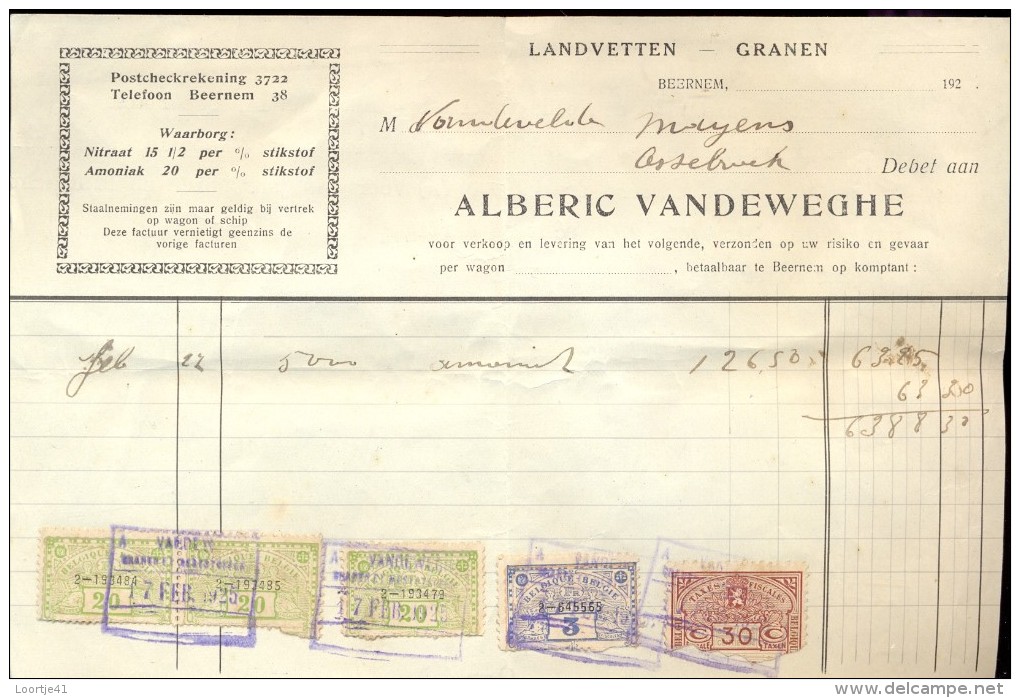 LANDVETTEN — GRANEN
BEERNEM, 192 .
Postcheckrekening 3722
Telefoon Beernem 38
Waarborg:
Nitraat 15 1/2 per % stikstof
Amoniak 20 per % stikstof
Staalnemingen zijn maar geldig bij vertrek
op wagon of schip
Deze factuur vernietigt geenzins de
vorige facturen
M Vandevelde Mayens
Assebroek Debet aan
ALBERIC VANDEWEGHE
voor verkoop en levering van het volgende, verzonden op uw risiko en gevaar
per wagon , betaalbaar te Beernem op komptant:
Feb 5000 126,50 6325
63 30
6388 30
2-193484 2-193485
20 20
7 FEB. 1925
2-193479
20
7 FEB. 1925
BELGIQUE-BELGIË
2-645565
3
TAXES FISCALES
30
Loortje41
delcampe.net